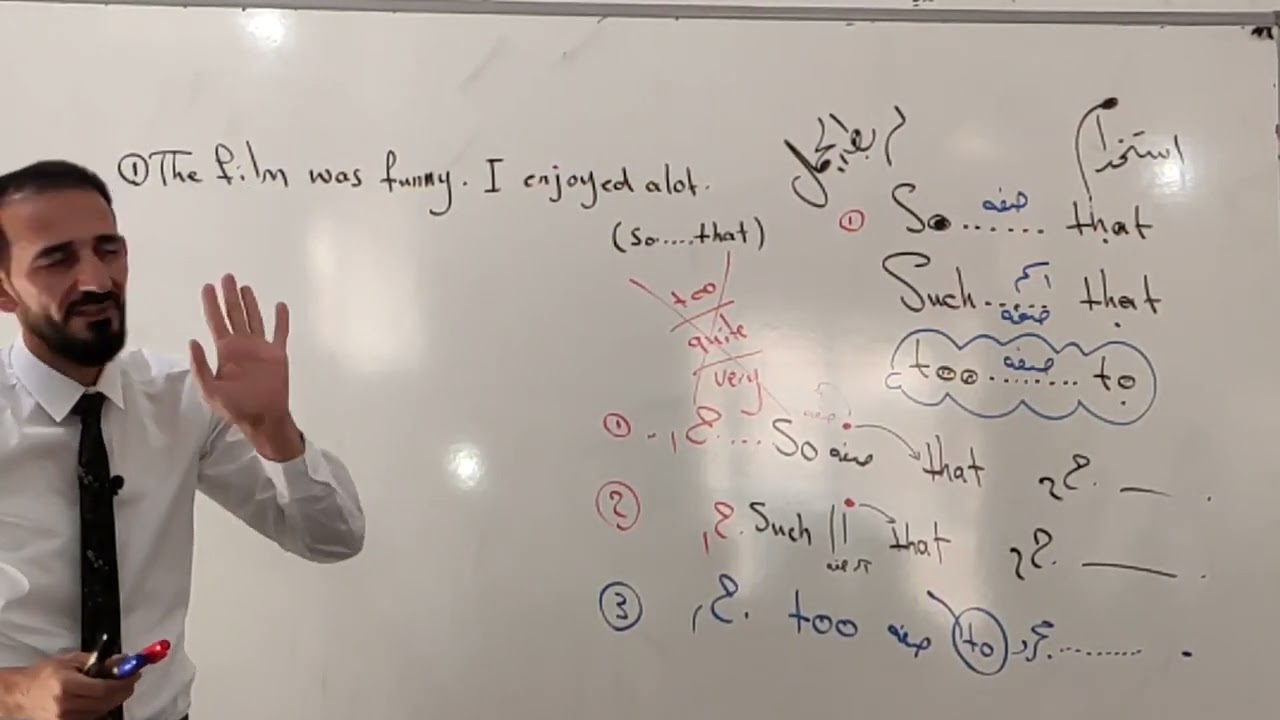 ① The film was funny. I enjoyed alot.
(So....that)
too
quite
very
استخدام
① So ...صفه... that
Such ..اسم صفة.. that
too ...صفه... to
① .. ج١ .... So صفه that ج٢. __ .
② ج١. Such || that ج٢. ___ .
③ ج١. too صفه to مجرد .......... .